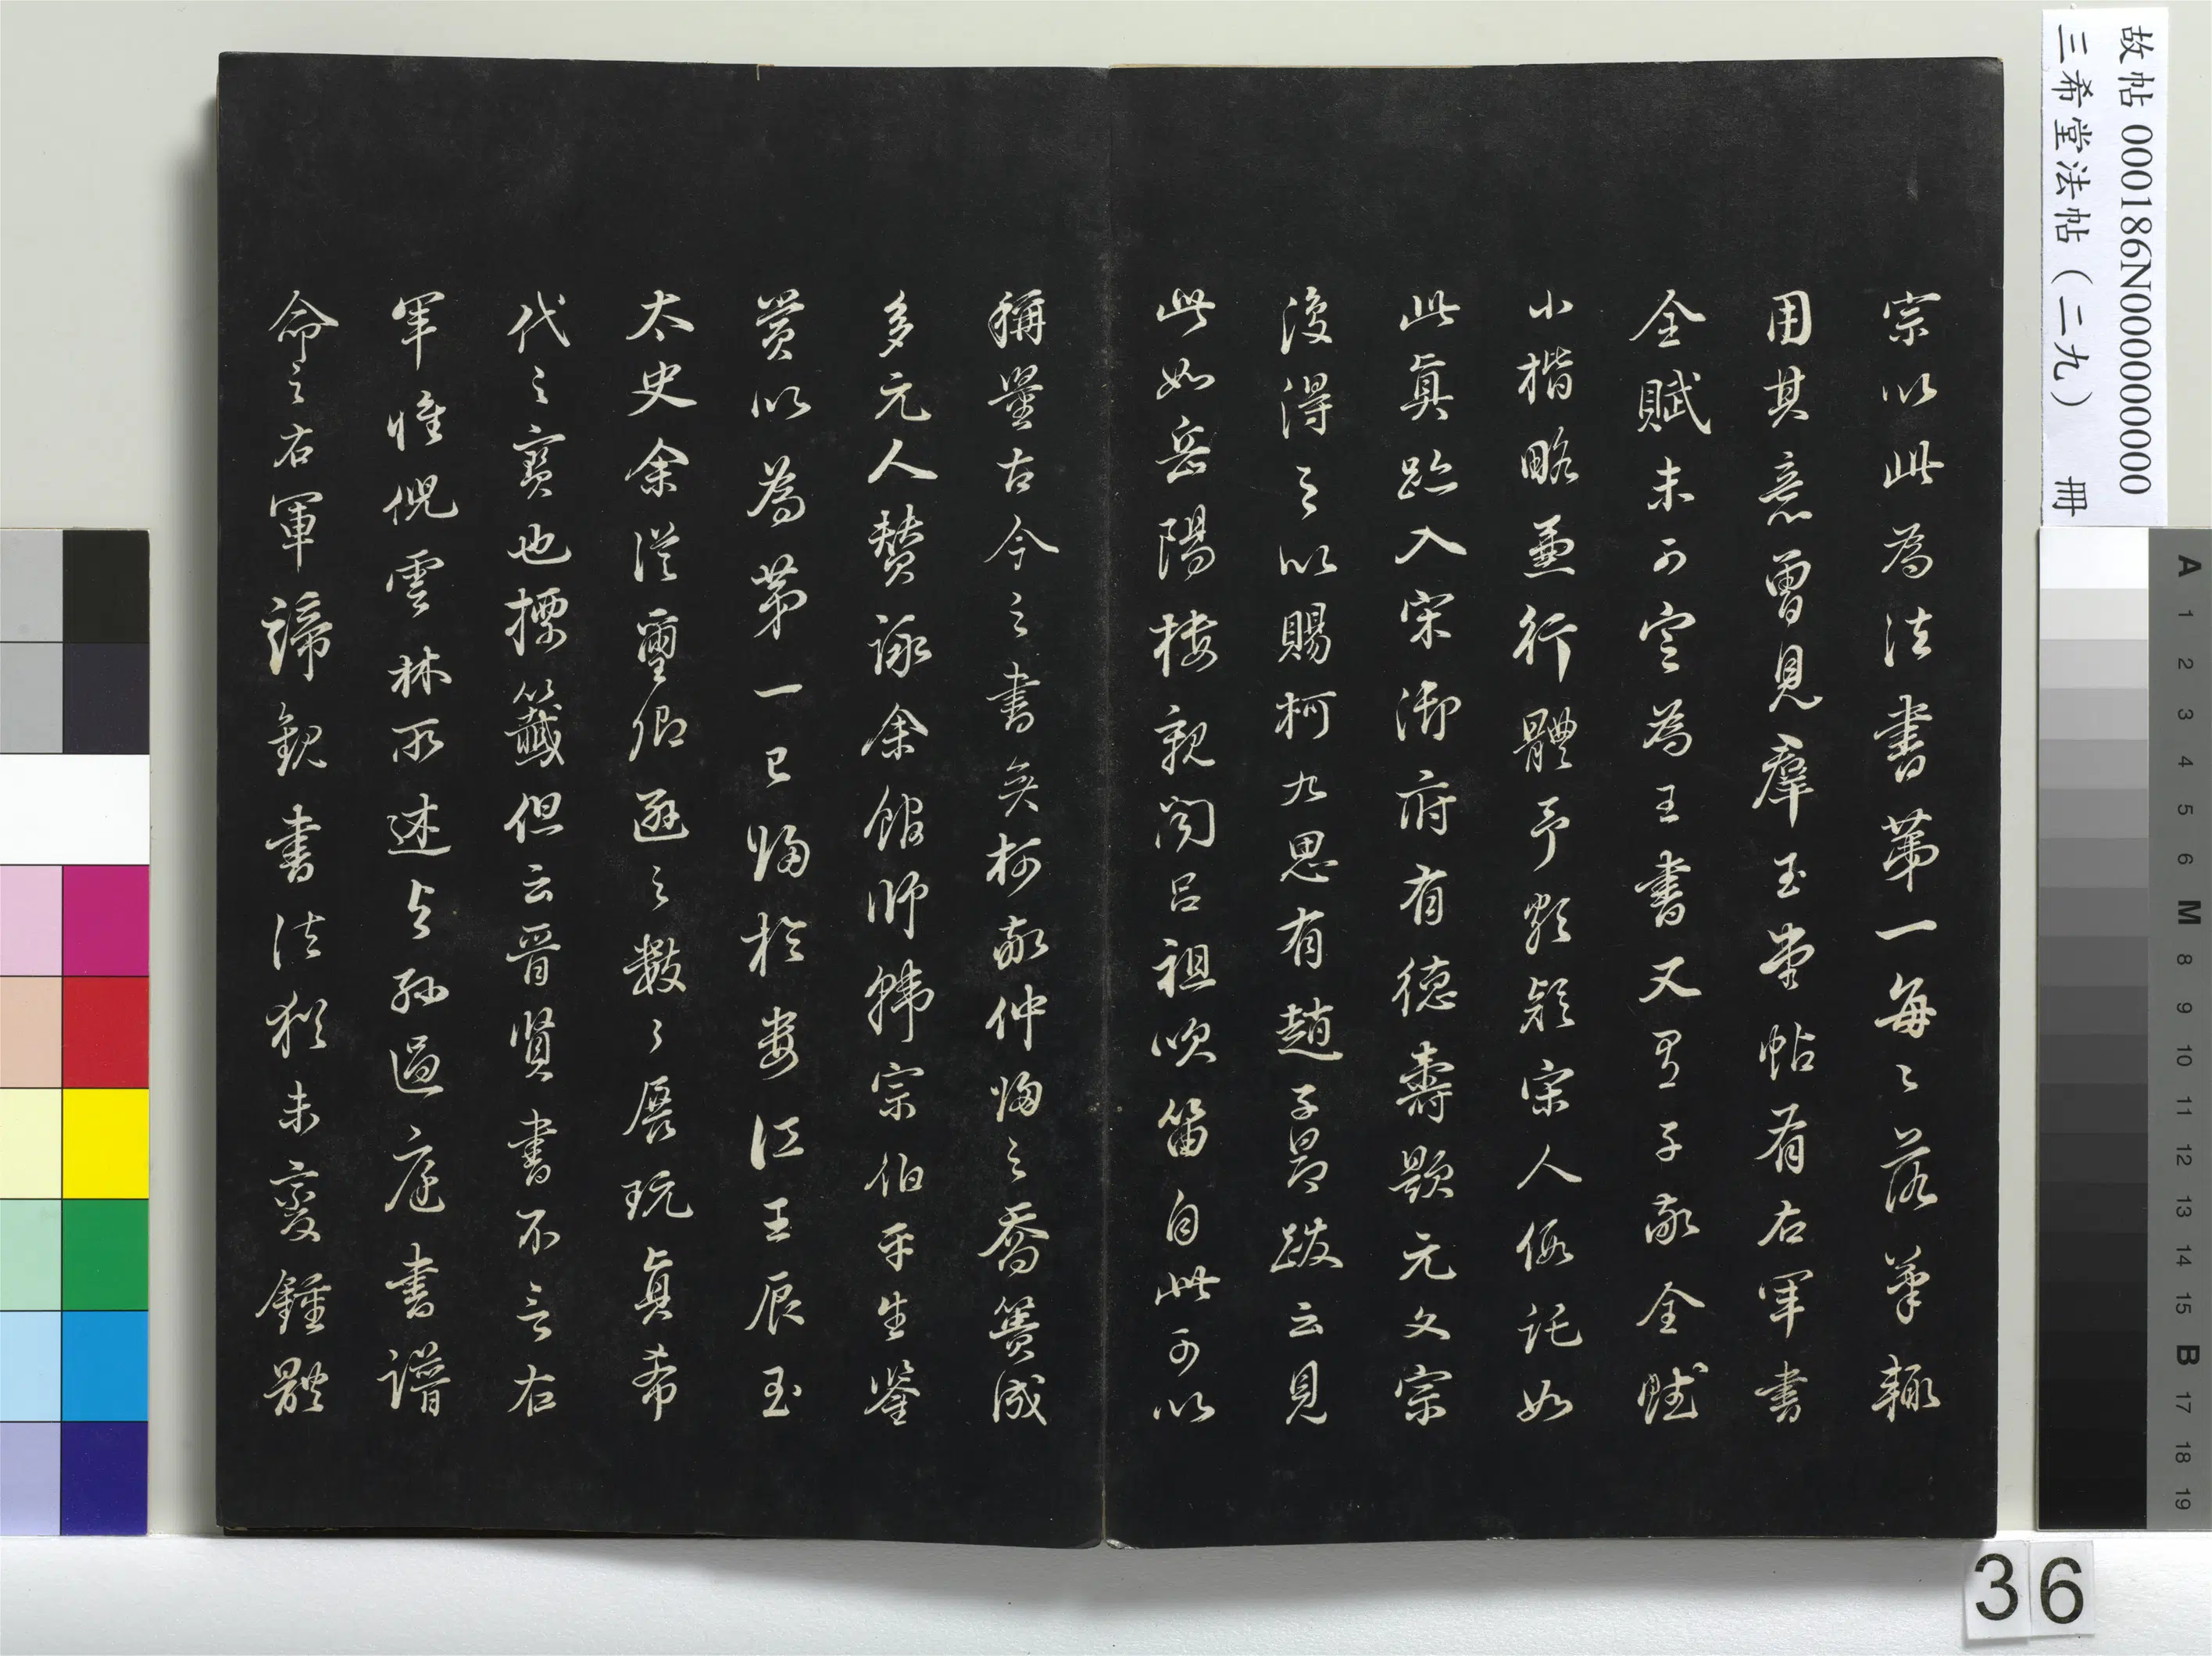 宗以此為法書第一每々落筆輒
用其意曾見群玉堂帖有右軍書
全賦未可定為王書又有子敬全賦
小楷略兼行體予頗疑宋人偽託如
此真跡入宋御府有德壽題元文宗
後得之以賜柯九思有趙子昂跋云見
此如岳陽樓親聞呂祖吹笛自此可以
稱量古今之書矣柯敬仲歸之喬簣成
多元人贊詠余館師韓宗伯平生鑒
賞以為第一已歸於婁江王辰玉
太史余從璽卿遜之數々展玩真希
代之寶也標籤但云晉賢書不言右
軍惟倪雲林所述與孫過庭書譜
命之右軍諦觀書法猶未變鍾體
故帖 000186N000000000
三希堂法帖（二九） 冊
A 1 2 3 4 5 6 M 8 9 10 11 12 13 14 15 B 17 18 19
36